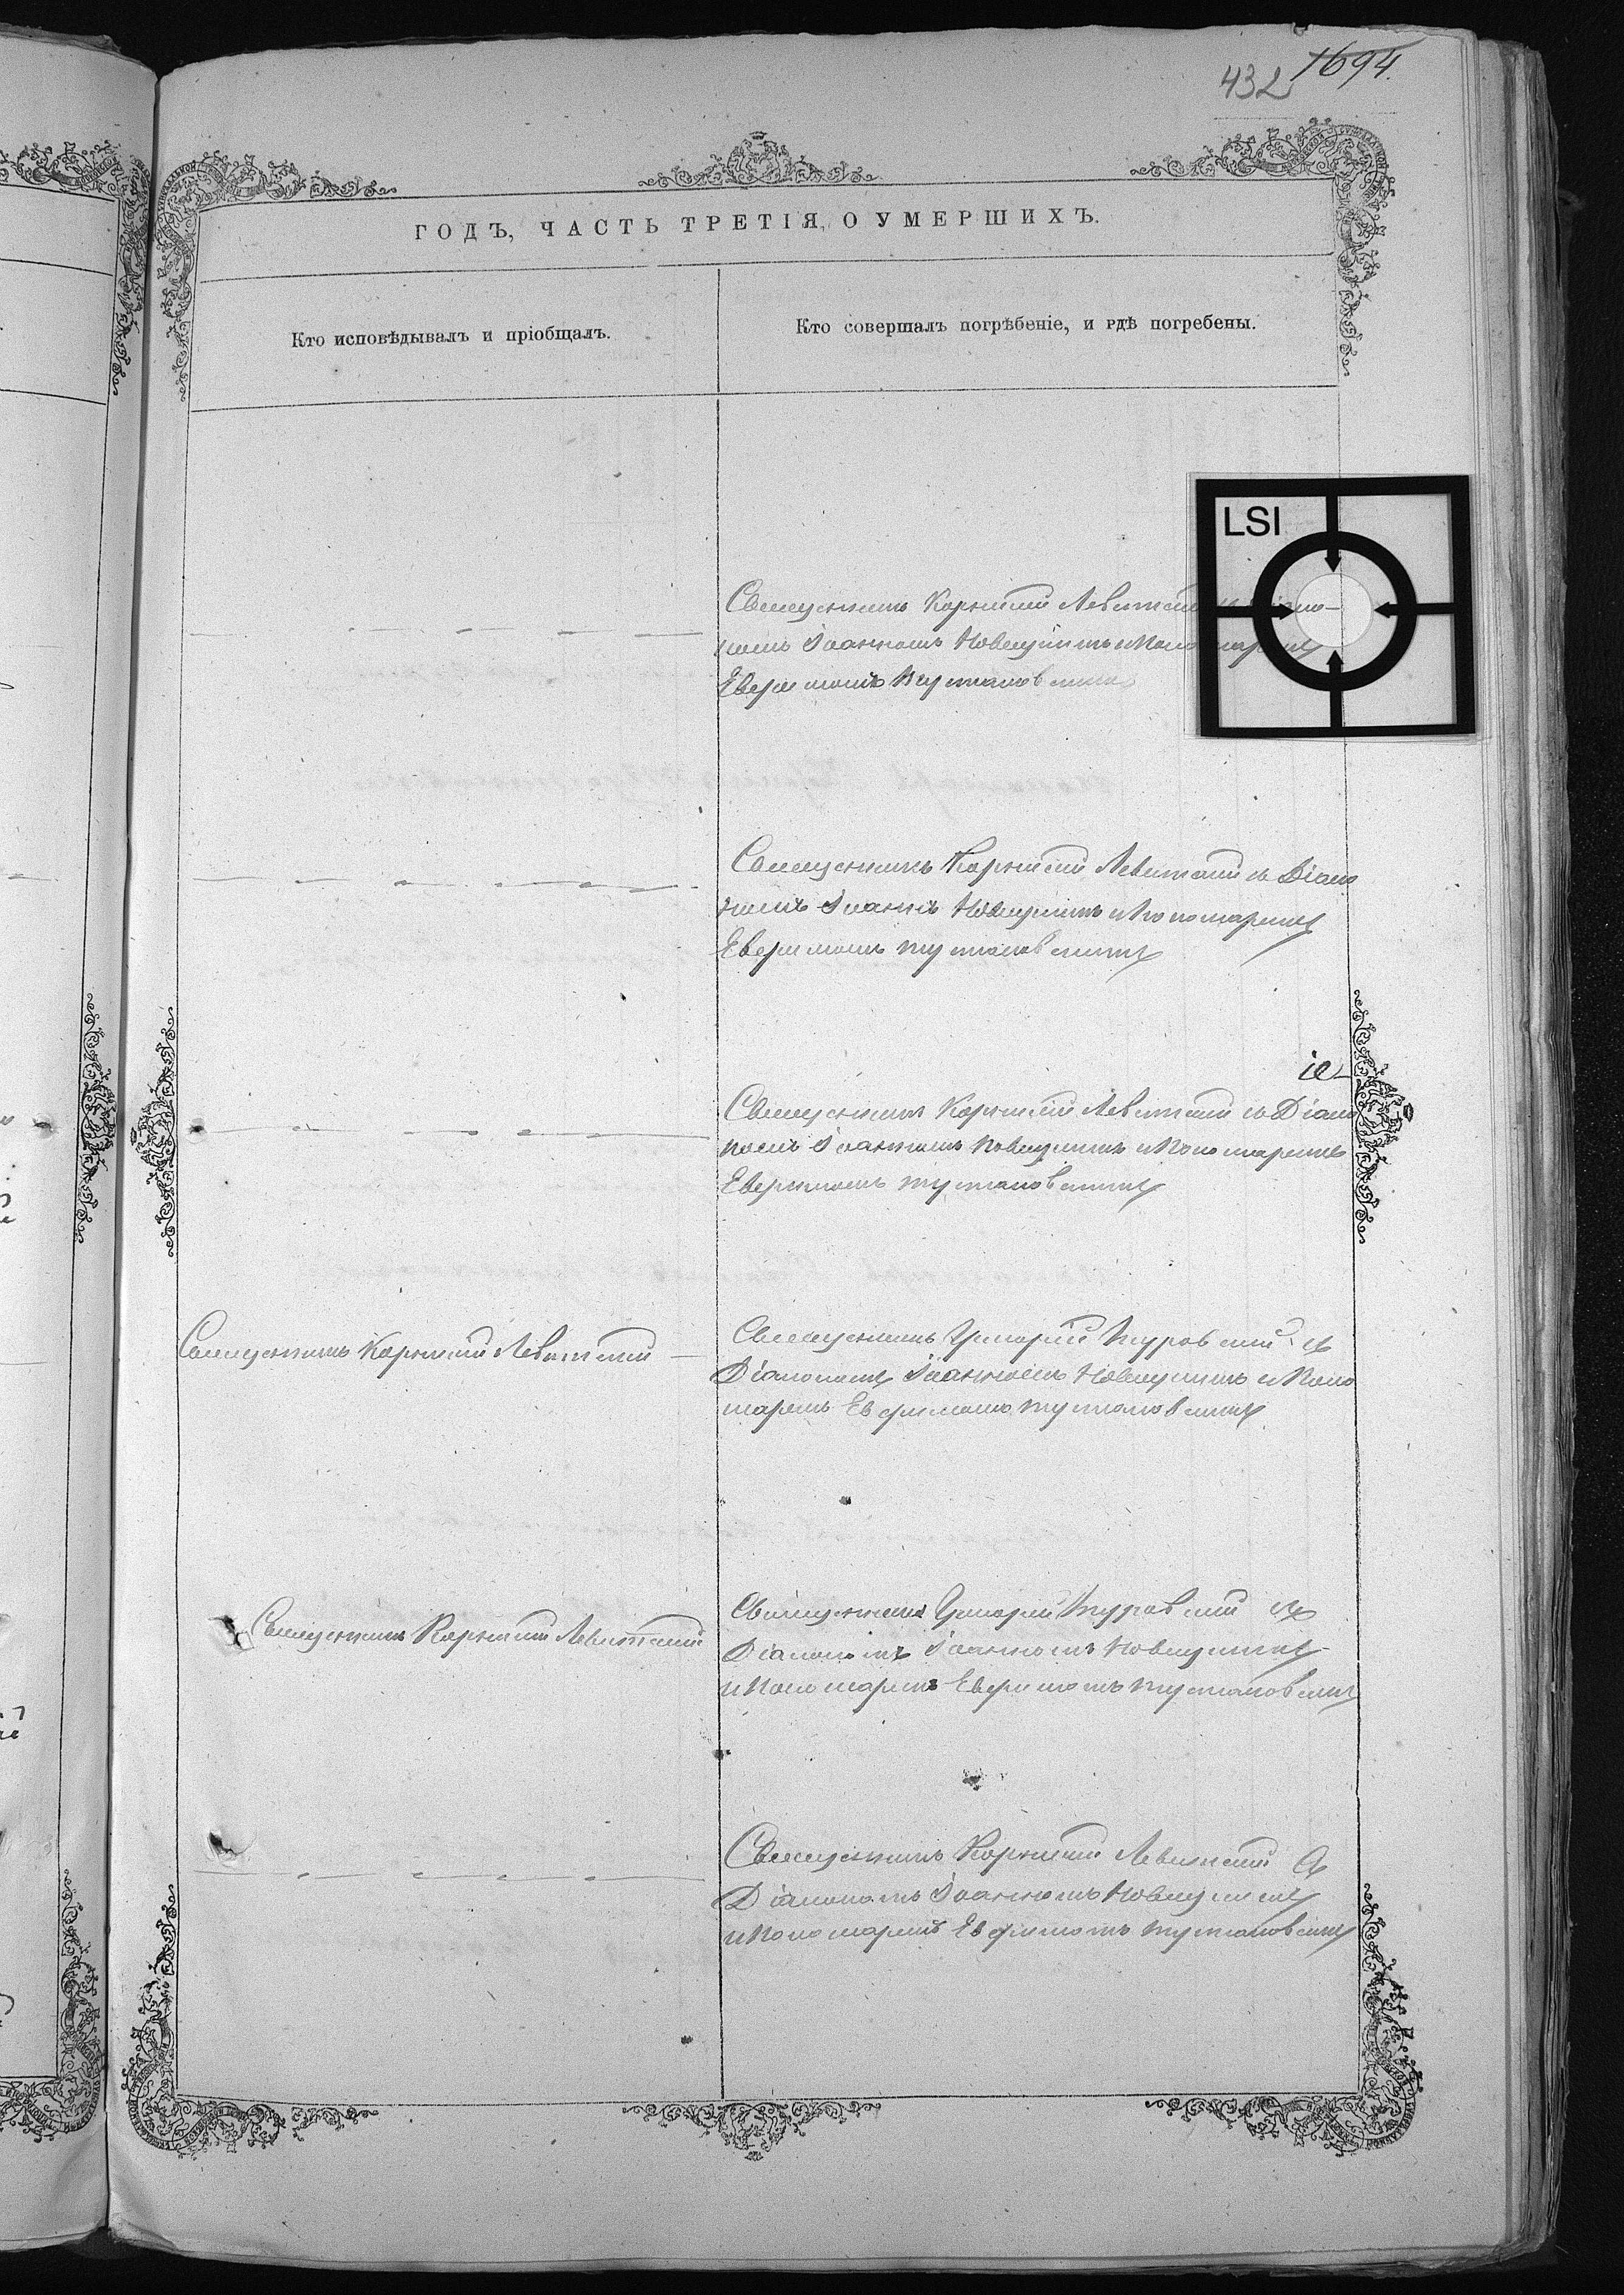 432 1694.
ГОДЪ, ЧАСТЬ ТРЕТІЯ, О УМЕРШИХЪ.
Кто исповѣдывалъ и пріобщалъ.
Кто совершалъ погрѣбеніе, и гдѣ погребены.
LSI
Священникъ Корнилій Левитскій
номъ Іоанномъ Новицкимъ и
Евфимомъ Тустановскимъ
Священникъ Корнилій Левитскій съ Діако
номъ Іоанномъ Новицкимъ и Пономаремъ
Евфимомъ Тустановскимъ
іе
Священникъ Корнилій Левитскій съ Діако
номъ Іоанномъ Новицкимъ и Пономаремъ
Евфимомъ Тустановскимъ
Священникъ Корнилій Левитскій
Священникъ Григорій Туровскій съ
Діакономъ Іоанномъ Новицкимъ и Поно
маремъ Евфимомъ Тустановскимъ
Священникъ Корнилій Левитскій
Священникъ Григорій Туровскій съ
Діакономъ Іоанномъ Новицкимъ
и Пономаремъ Евфимомъ Тустановским
Священникъ Корнилій Левитскій съ
Діакономъ Іоанномъ Новицкимъ
и Пономаремъ Евфимомъ Тустановским